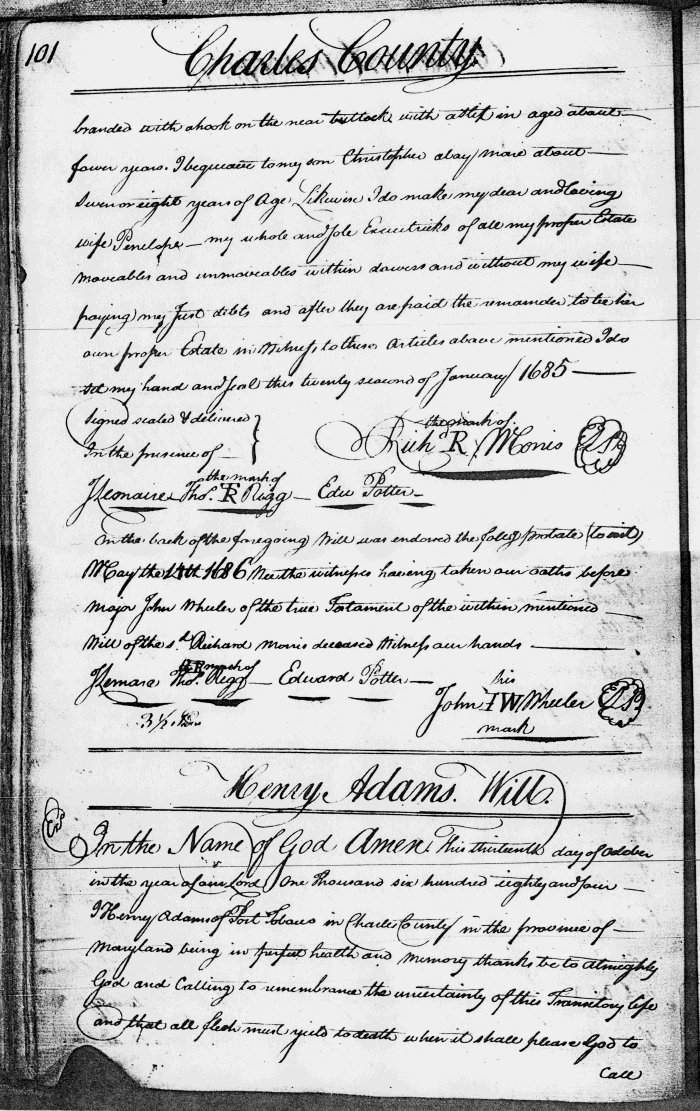 101
Charles County.
branded with a hook on the near buttock with a in aged about
fower years. I bequeave to my son Christopher a bay mare about
seven or eight years of Age Likewise I do make my dear and loving
wife Penelope my whole and sole Executricks of all my proper Estate
moveables and unmoveables within dowers and without my wife
paying my Just debts and after they are paid the remainder to be her
own proper Estate in Witness to these Articles above mentioned I do
set my hand and seal this twenty second of January 1685
signed sealed & delivered
In the presence of
the mark of
Rich.d R Morris
the mark of
JLemaire Tho.s TR Rigg Edw Potter
On the back of the foregoing Will was endorsed the follg probate (to wit)
May the 1686 Wee the witnesses haveing taken our oaths before
Major John Wheeler of the true Testament of the within mentioned
Will of the s.d Richard Morris deceased Witness our hands
mark of
JLemare Tho.s Rigg Edward Potter
his
John IW Wheeler
mark
3½
Henry Adams. Will.
In the Name of God Amen This thirteenth day of October
in the year of our Lord One Thousand six hundred eighty and four
I Henry Adams of Port Tobaco in Charles County in the province of
Maryland being in perfect health and memory thanks be to almighty
God and Calling to remembrance the uncertainty of this Transitory life
and that all flesh must yield to death when it shall please God to
Call